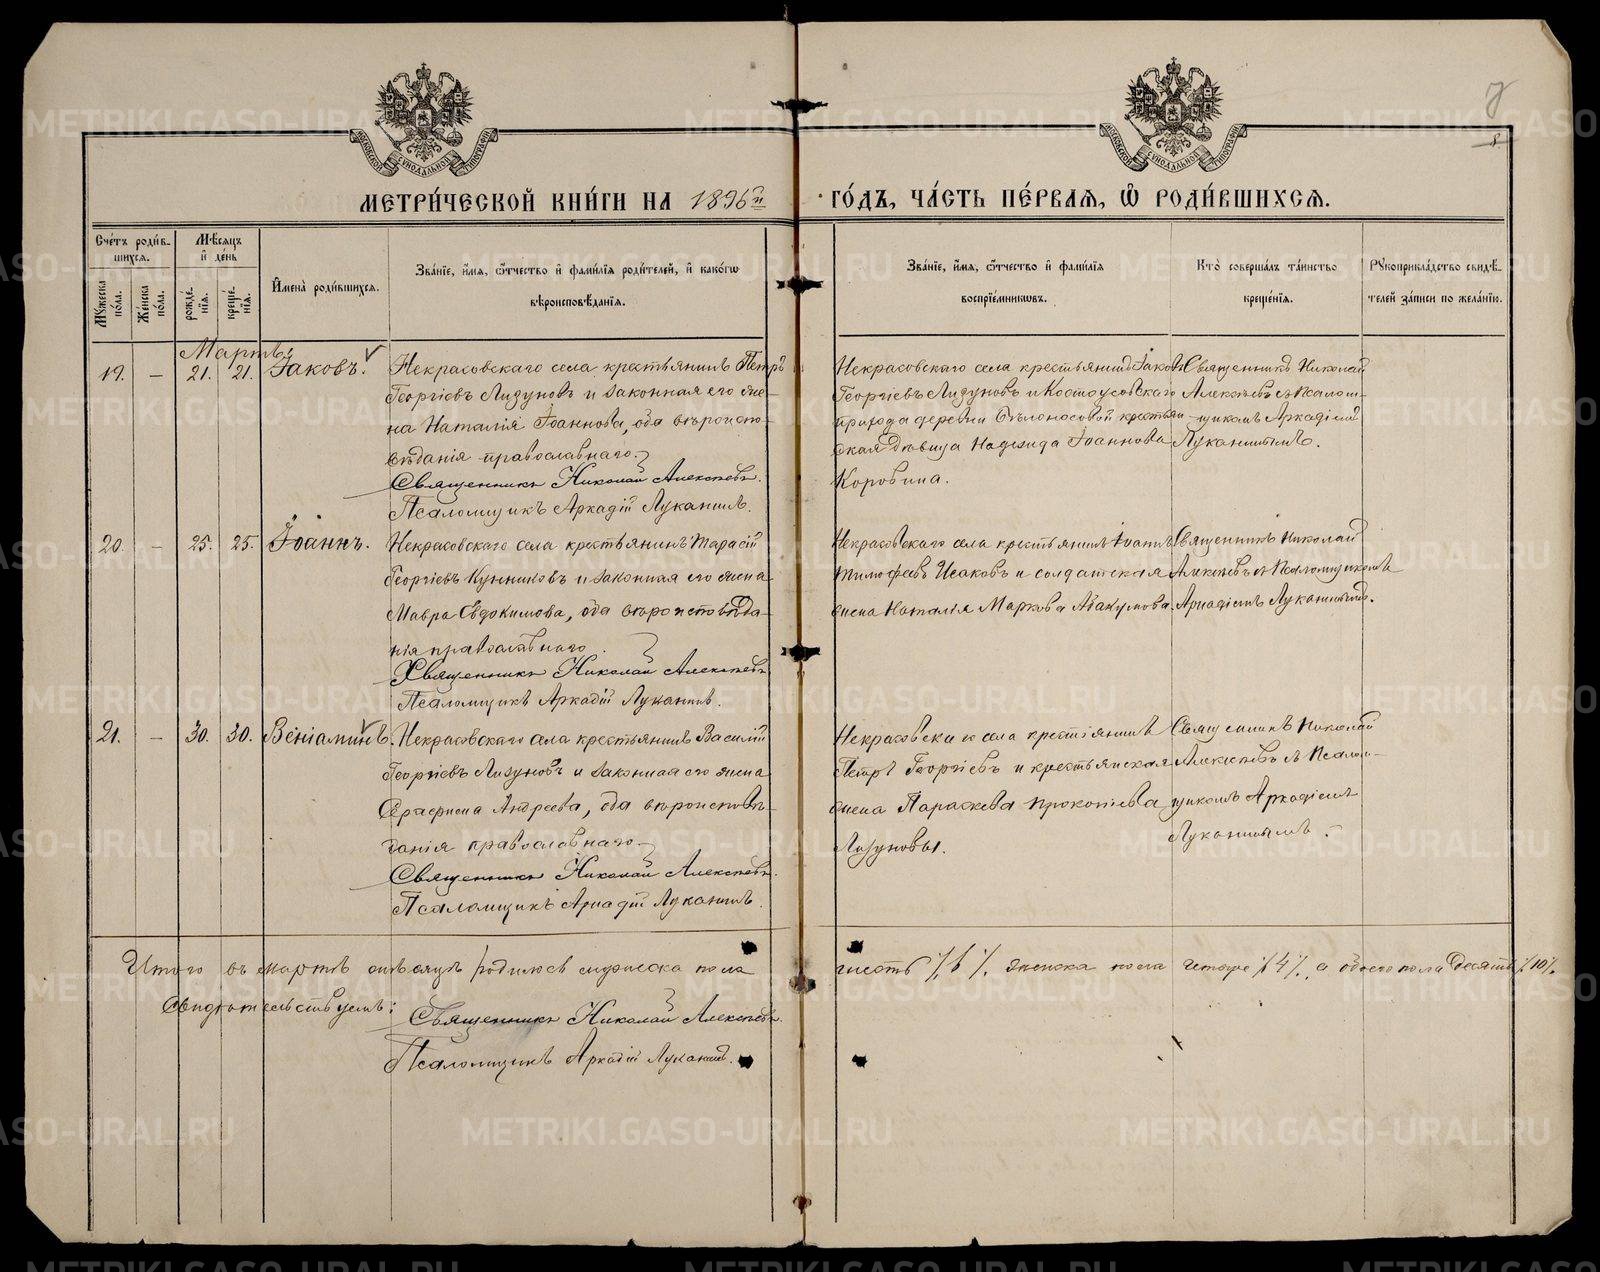 МЕТРИ́ЧЕСКОЙ КНИ́ГИ НА 1896й ГО́ДЪ, ЧА́СТЬ ПЕ́РВАЯ, Ѽ РОДИ́ВШИХСЯ.
Сче́тъ роди́в-шихся.
Мѣ́сяцъ и҆ де́нь
И҆мена̀ роди́вшихся.
Зва́нїе, и҆́мя, ѻ҆́тчество и҆ фами́лїя роди́телей, и҆ како́гѡ вѣроисповѣ́данїя.
Зва́нїе, и҆́мя, ѻ҆́тчество и҆ фами́лїя воспрїе́мникѡвъ.
Кто̀ соверша́лъ та́инство креще́нїя.
Рꙋкоприкла́дство свидѣ́-телей за́писи по жела́нїю.
Мꙋ́жеска по́ла.
Же́нска по́ла.
рожде́-нїя.
креще́-нїя.
Мартъ
19. — 21. 21. Іаковъ.
Некрасовскаго села крестьянинъ Петръ
Георгіевъ Лизуновъ и законная его же-
на Наталія Іоаннова, оба вѣроиспо-
вѣданія православнаго.
Священникъ Николай Алексѣевъ.
Псаломщикъ Аркадій Луканинъ.
Некрасовскаго села крестьянинъ Іаковъ
Георгіевъ Лизуновъ и Костоусовскаго
прихода деревни Бѣлоносовой крестьян-
ская дѣвица Надежда Іоаннова
Коровина.
Священникъ Николай
Алексѣевъ съ Псалом-
щикомъ Аркадіемъ
Луканинымъ.
20. — 25. 25. Іоаннъ.
Некрасовскаго села крестьянинъ Тарасій
Георгіевъ Кунниковъ и законная его жена
Мавра Евдокимова, оба вѣроисповѣда-
нія православнаго.
Священникъ Николай Алексѣевъ
Псаломщикъ Аркадій Луканинъ.
Некрасовскаго села крестьянинъ Іоаннъ
Тимофеевъ Исаковъ и солдатская
жена Наталія Маркова Абакумова.
Священникъ Николай
Алексѣевъ съ Псаломщикомъ
Аркадіемъ Луканинымъ.
21. — 30. 30. Веніаминъ.
Некрасовскаго села крестьянинъ Василій
Георгіевъ Лизуновъ и законная его жена
Андреева, оба вѣроисповѣ-
данія православнаго
Священникъ Николай Алексѣевъ.
Псаломщикъ Аркадій Луканинъ.
Некрасовскаго села крестьянинъ
Петръ Георгіевъ и крестьянская
жена Параскева Прокопіева
Лизуновы.
Священникъ Николай
Алексѣевъ съ Псалом-
щикомъ Аркадіемъ
Луканинымъ.
Итого въ мартѣ мѣсяцѣ родилось мужеска пола шесть /6/, женска пола четыре /4/, а обоего пола десять /10/.
Свидѣтельствуемъ:
Священникъ Николай Алексѣевъ.
Псаломщикъ Аркадій Луканинъ.
METRIKI.GASO-URAL.RU